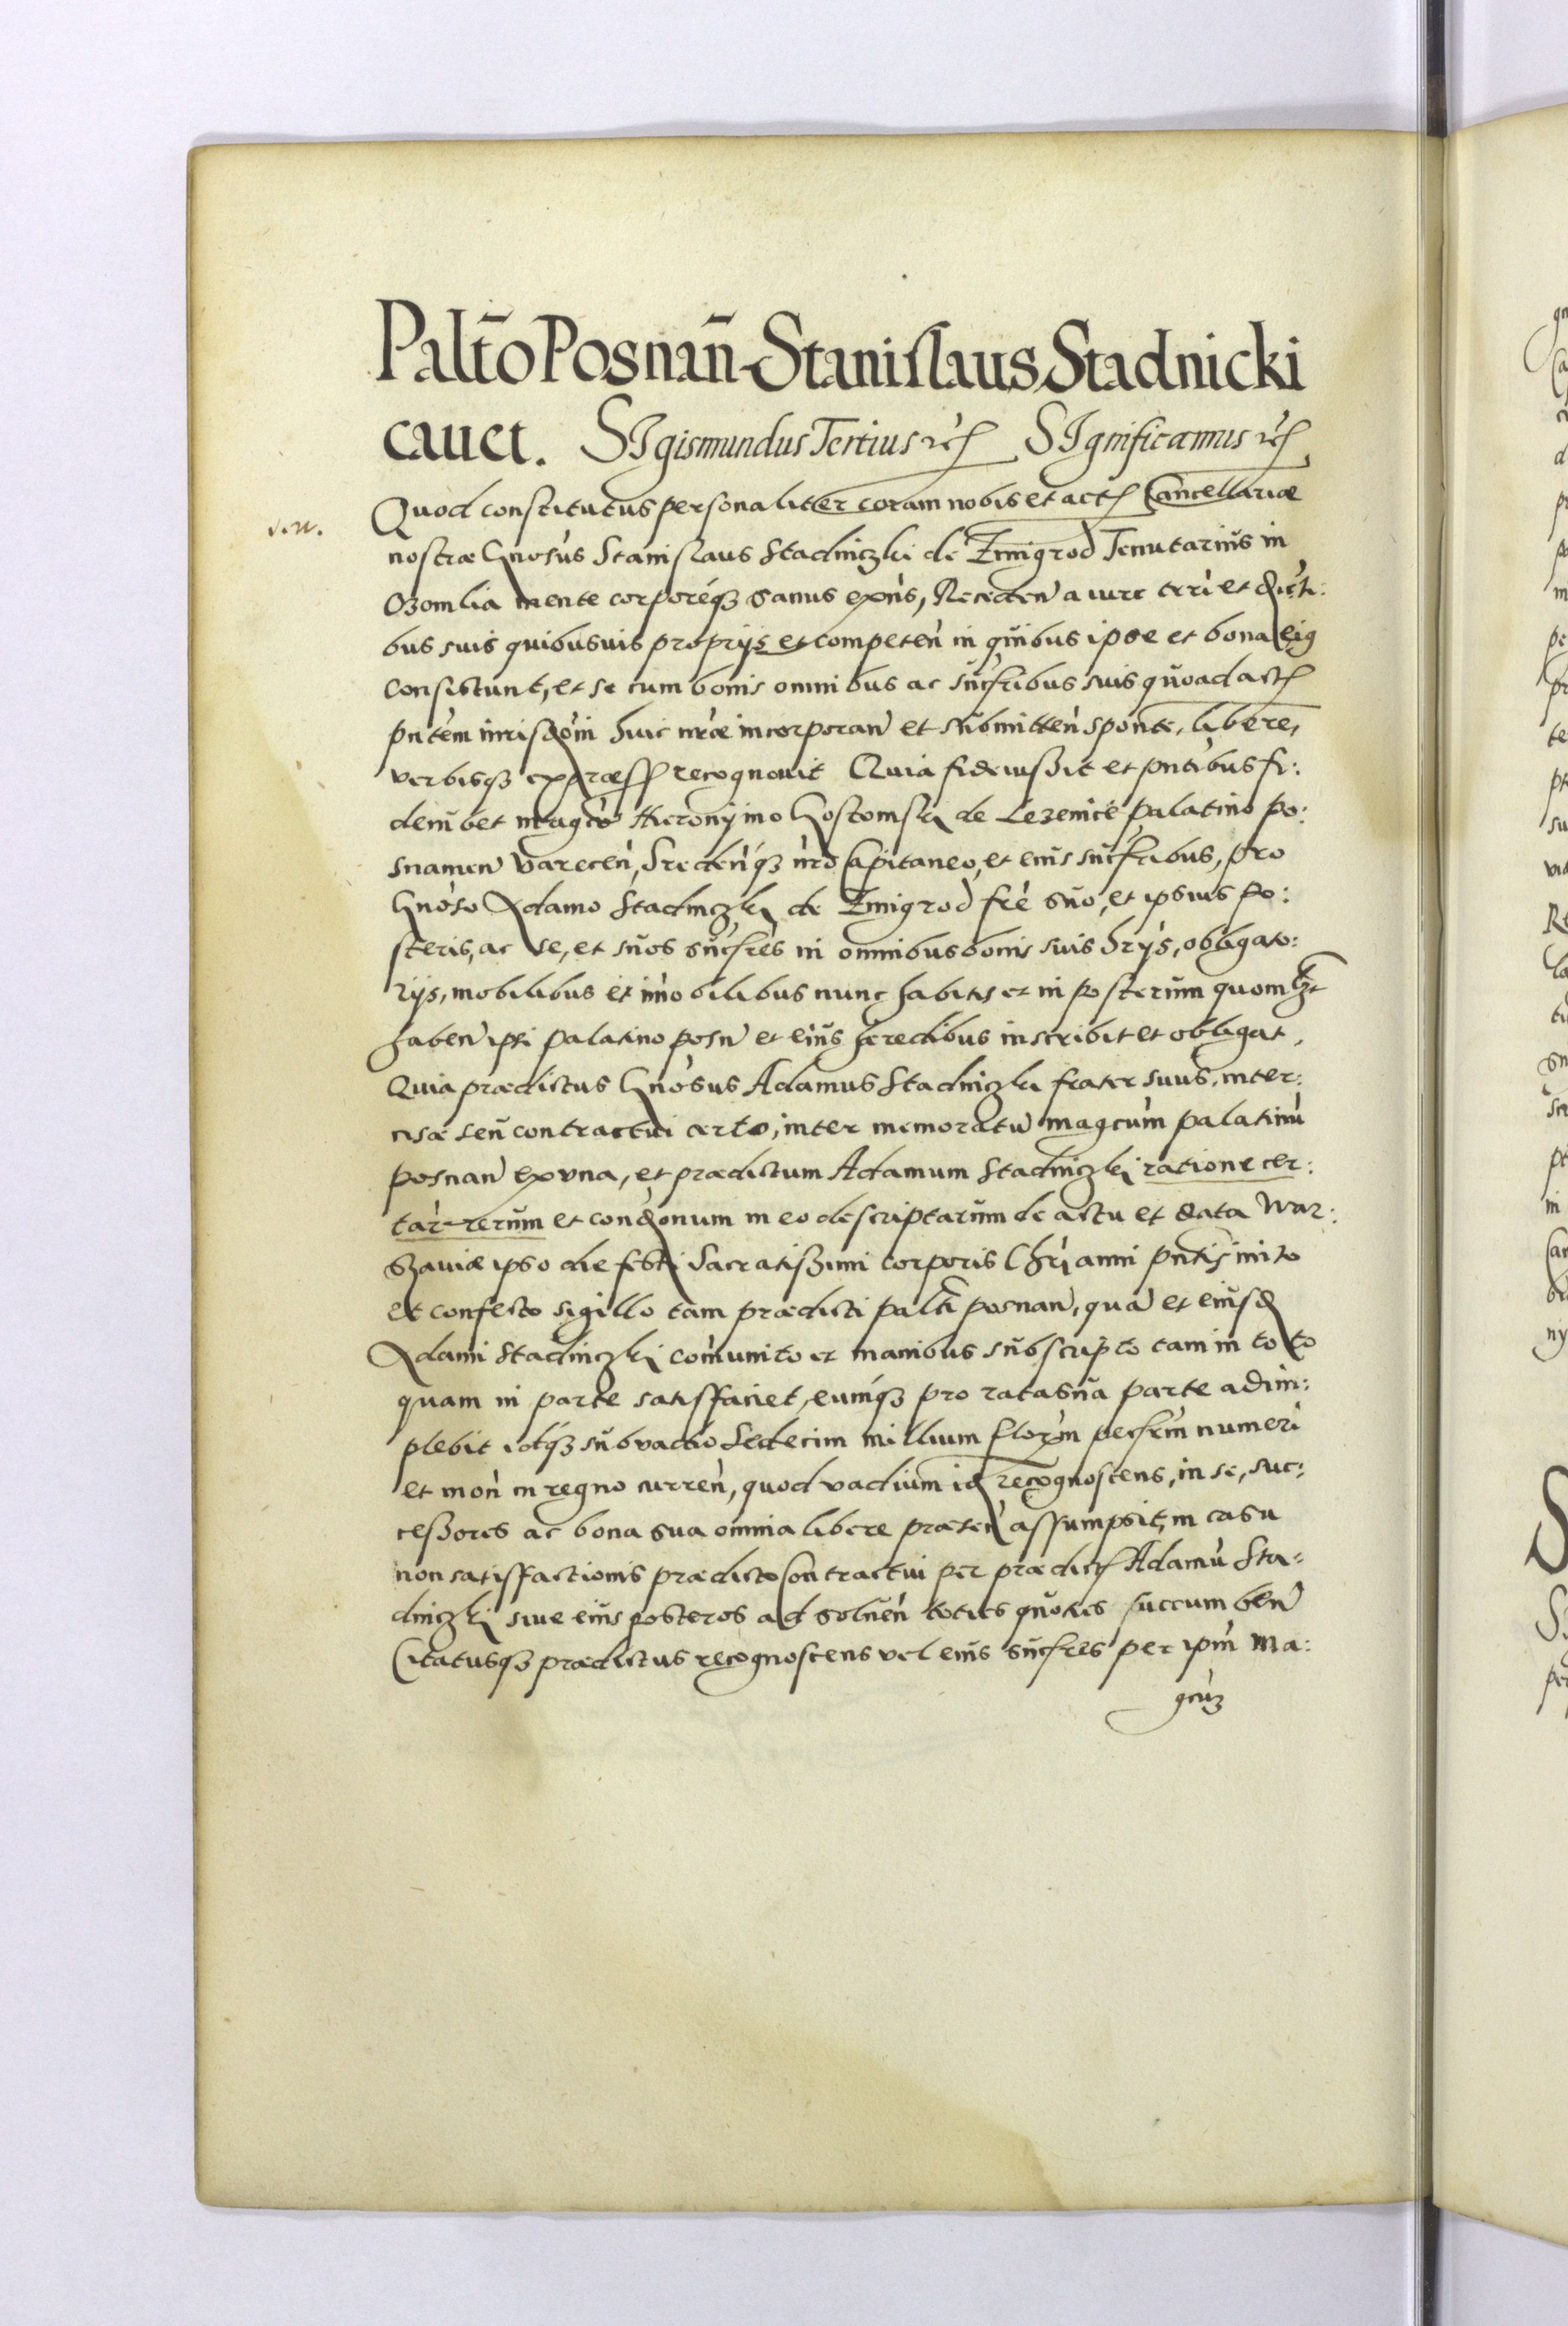 Paltō Posnań Stanislaus Stadnicki
cauet. SIgismundus Tertius etc SIgnificamus etc
Quod constitutus personaliter coram nobis et actis Cancellariæ
nostræ Gnosus Stanislaus Stadniczki de Zmigrod Tenutarius in
Ozomlia mente corporéq3 sanus expns, Receden a iure terri et distri:
bus suis quibusuis proprijs et competen in quibus ipse et bona eius
consistunt, et se cum bonis omnibus ac succribus suis quoad actum
pntem iurisdoni huic nræ incorporan et submitten sponte, libere,
verbisq3 expræss recognouit Quia fideiussit et pntibus fi:
deiubet magco Hieronÿmo Gostomski de Lezenice palatino po:
snanien Varecen, Sredenq3 nro Capitaneo, et eius succribus, pro
Gnoso Adamo Stadniczki de Zmigrod fre suo, et ipsius po:
steris, ac se, et suos succres in omnibus bonis suis hrijs, obligato:
rijs, mobilibus et imobilibus nunc habitis et in posterum quomlibet
haben ipsi palatino posn et eius heredibus inscribit et obligat,
Quia prædictus Gnosus Adamus Stadniczki frater suus, inter:
cisæ seu contractui certo, inter memoratu magcum palatinu
posnan ex vna, et prædictum Adamum Stadniczki ratione cer:
tar rerum et condonum in eo descriptarum de actu et data War:
szauiæ ipso die festi Sacratissimi Corporis Chri anni pntis inito
et confecto sigillo tam prædicti palti posnan, qua et eiusd
Adami Stadniczki comunito et manibus subscripto tam in toto
quam in parte satisfaciet, eumq3 pro rata sua parte adim:
plebit idq3 sub vadio Sedecim millium flor pecum numeri
et mon in regno curren, quod vadium id recognoscens, in se, suc:
cessores ac bona sua omnia libere præsen assumpsit, in casu
non satisfactionis prædicto Contractui per prædict Adamu Sta:
dniczki siue eius posteros ad soluen toties quoties succumben
Citatusq3 prædictus recognoscens vel eius succres per ipm Ma:
gcu3